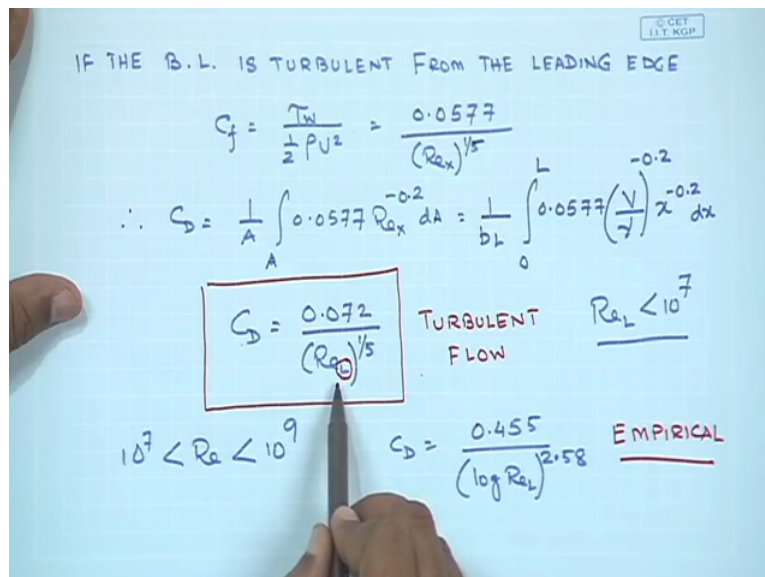 © CET
I.I.T. KGP
IF THE B.L. IS TURBULENT FROM THE LEADING EDGE
C_f = τ_w / (1/2 ρU²) = 0.0577 / (Re_x)^{1/5}
∴ C_D = 1/A ∫_A 0.0577 Re_x^{-0.2} dA = 1/bL ∫_0^L 0.0577 (V/ν)^{-0.2} x^{-0.2} dx
C_D = 0.072 / (Re_L)^{1/5} TURBULENT FLOW Re_L < 10^7
10^7 < Re < 10^9 C_D = 0.455 / (log Re_L)^{2.58} EMPIRICAL